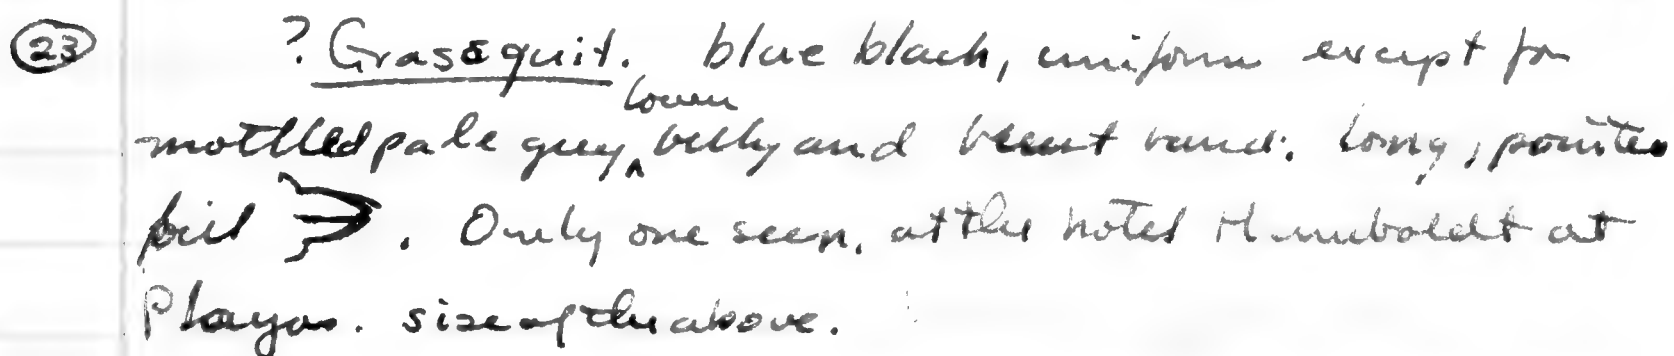 23 ? Grassquit. blue black, uniform except for
mottled pale grey ^lower belly and vent . Long, pointed
bill . Only one seen, at the hotel Humboldt at
Playas. size of the above.